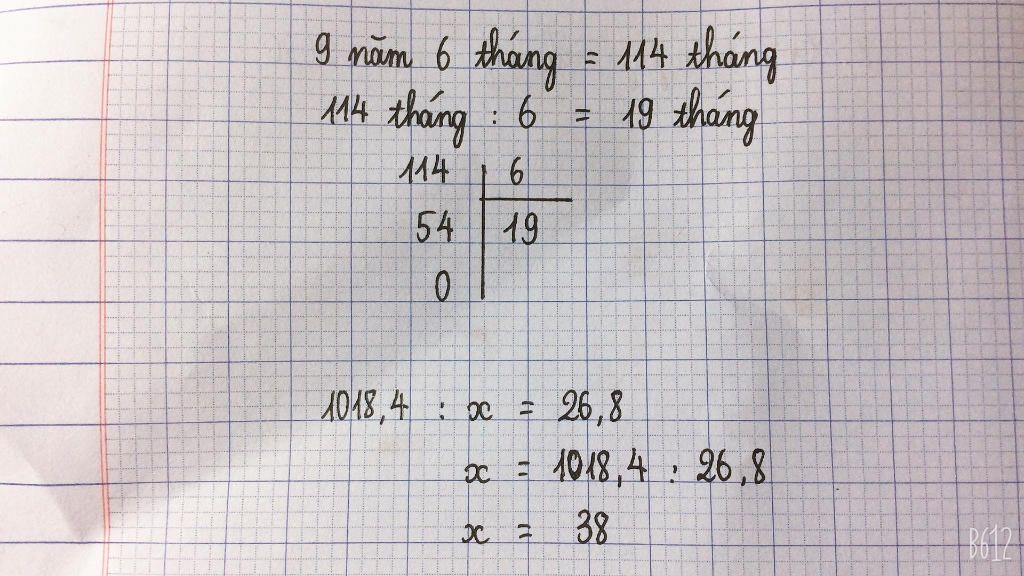 9 năm 6 tháng = 114 tháng
114 tháng : 6 = 19 tháng
114 6
54 19
0
1018,4 : x = 26,8
x = 1018,4 : 26,8
x = 38
B612